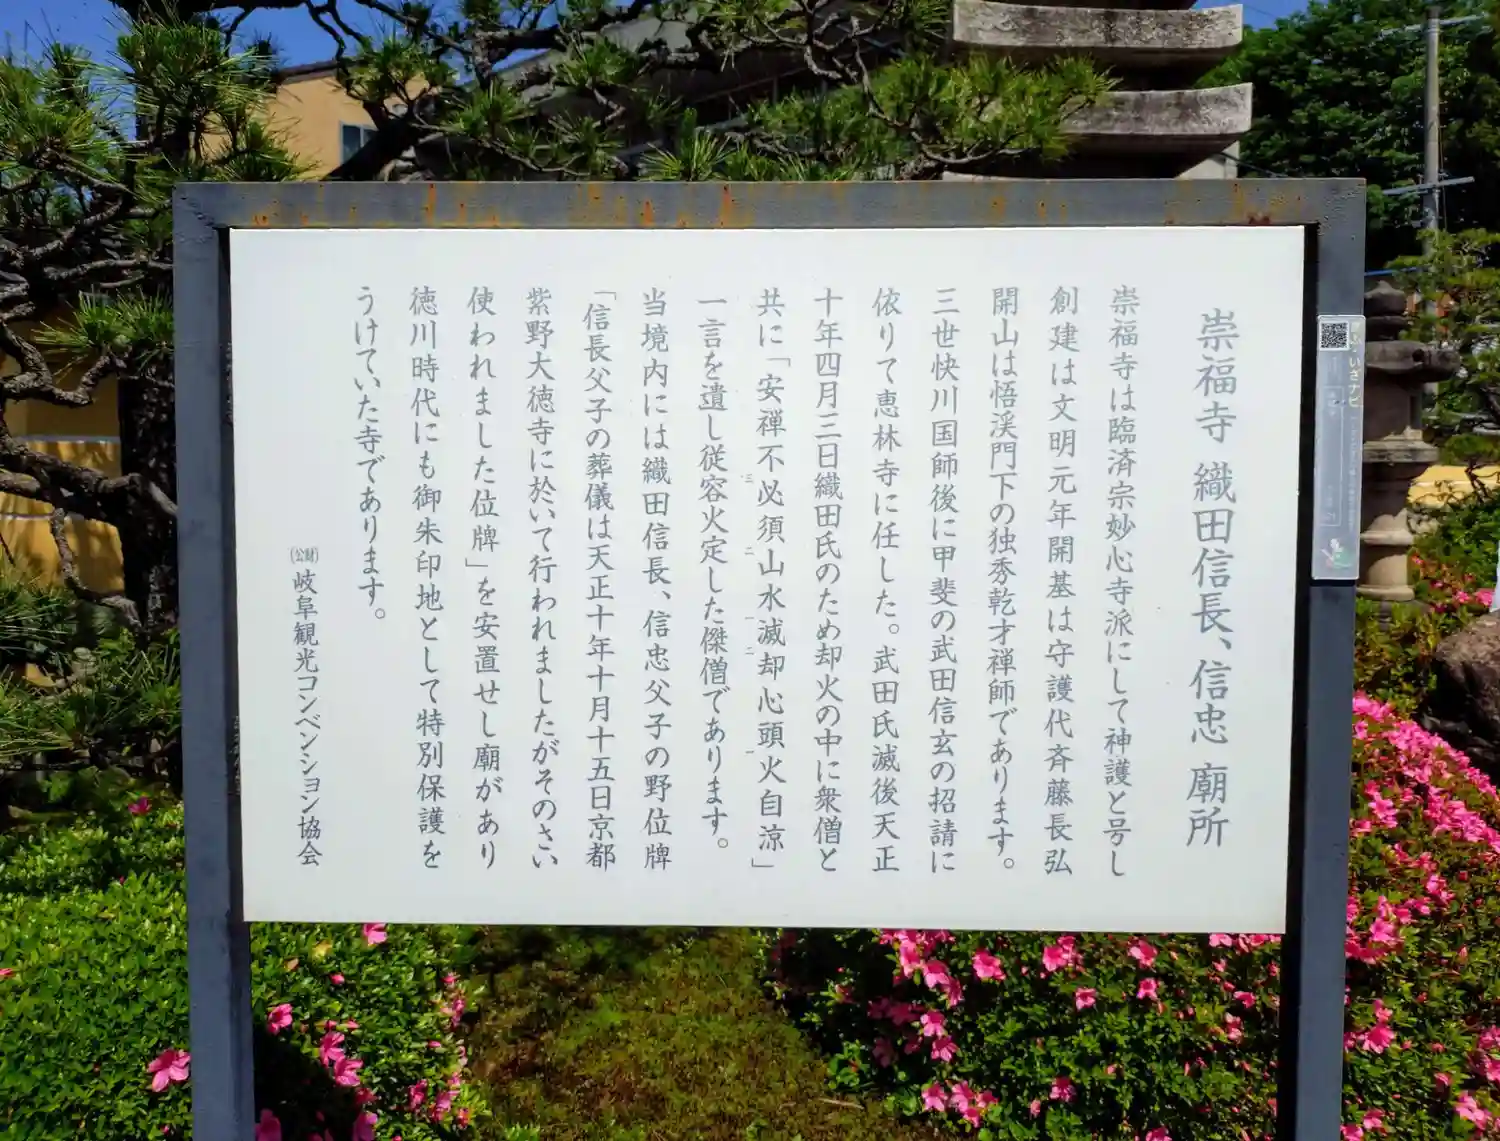 崇福寺 織田信長、信忠 廟所
崇福寺は臨済宗妙心寺派にして神護と号し
創建は文明元年開基は守護代斉藤長弘
開山は悟渓門下の独秀乾才禅師であります。
三世快川国師後に甲斐の武田信玄の招請に
依りて恵林寺に任した。武田氏滅後天正
十年四月三日織田氏のため却火の中に衆僧と
共に「安禅不必須山水滅却心頭火自涼」
一言を遺し従容火定した傑僧であります。
当境内には織田信長、信忠父子の野位牌
「信長父子の葬儀は天正十年十月十五日京都
紫野大徳寺に於いて行われましたがそのさい
使われました位牌」を安置せし廟があり
徳川時代にも御朱印地として特別保護を
うけていた寺であります。
(公財)岐阜観光コンベンション協会